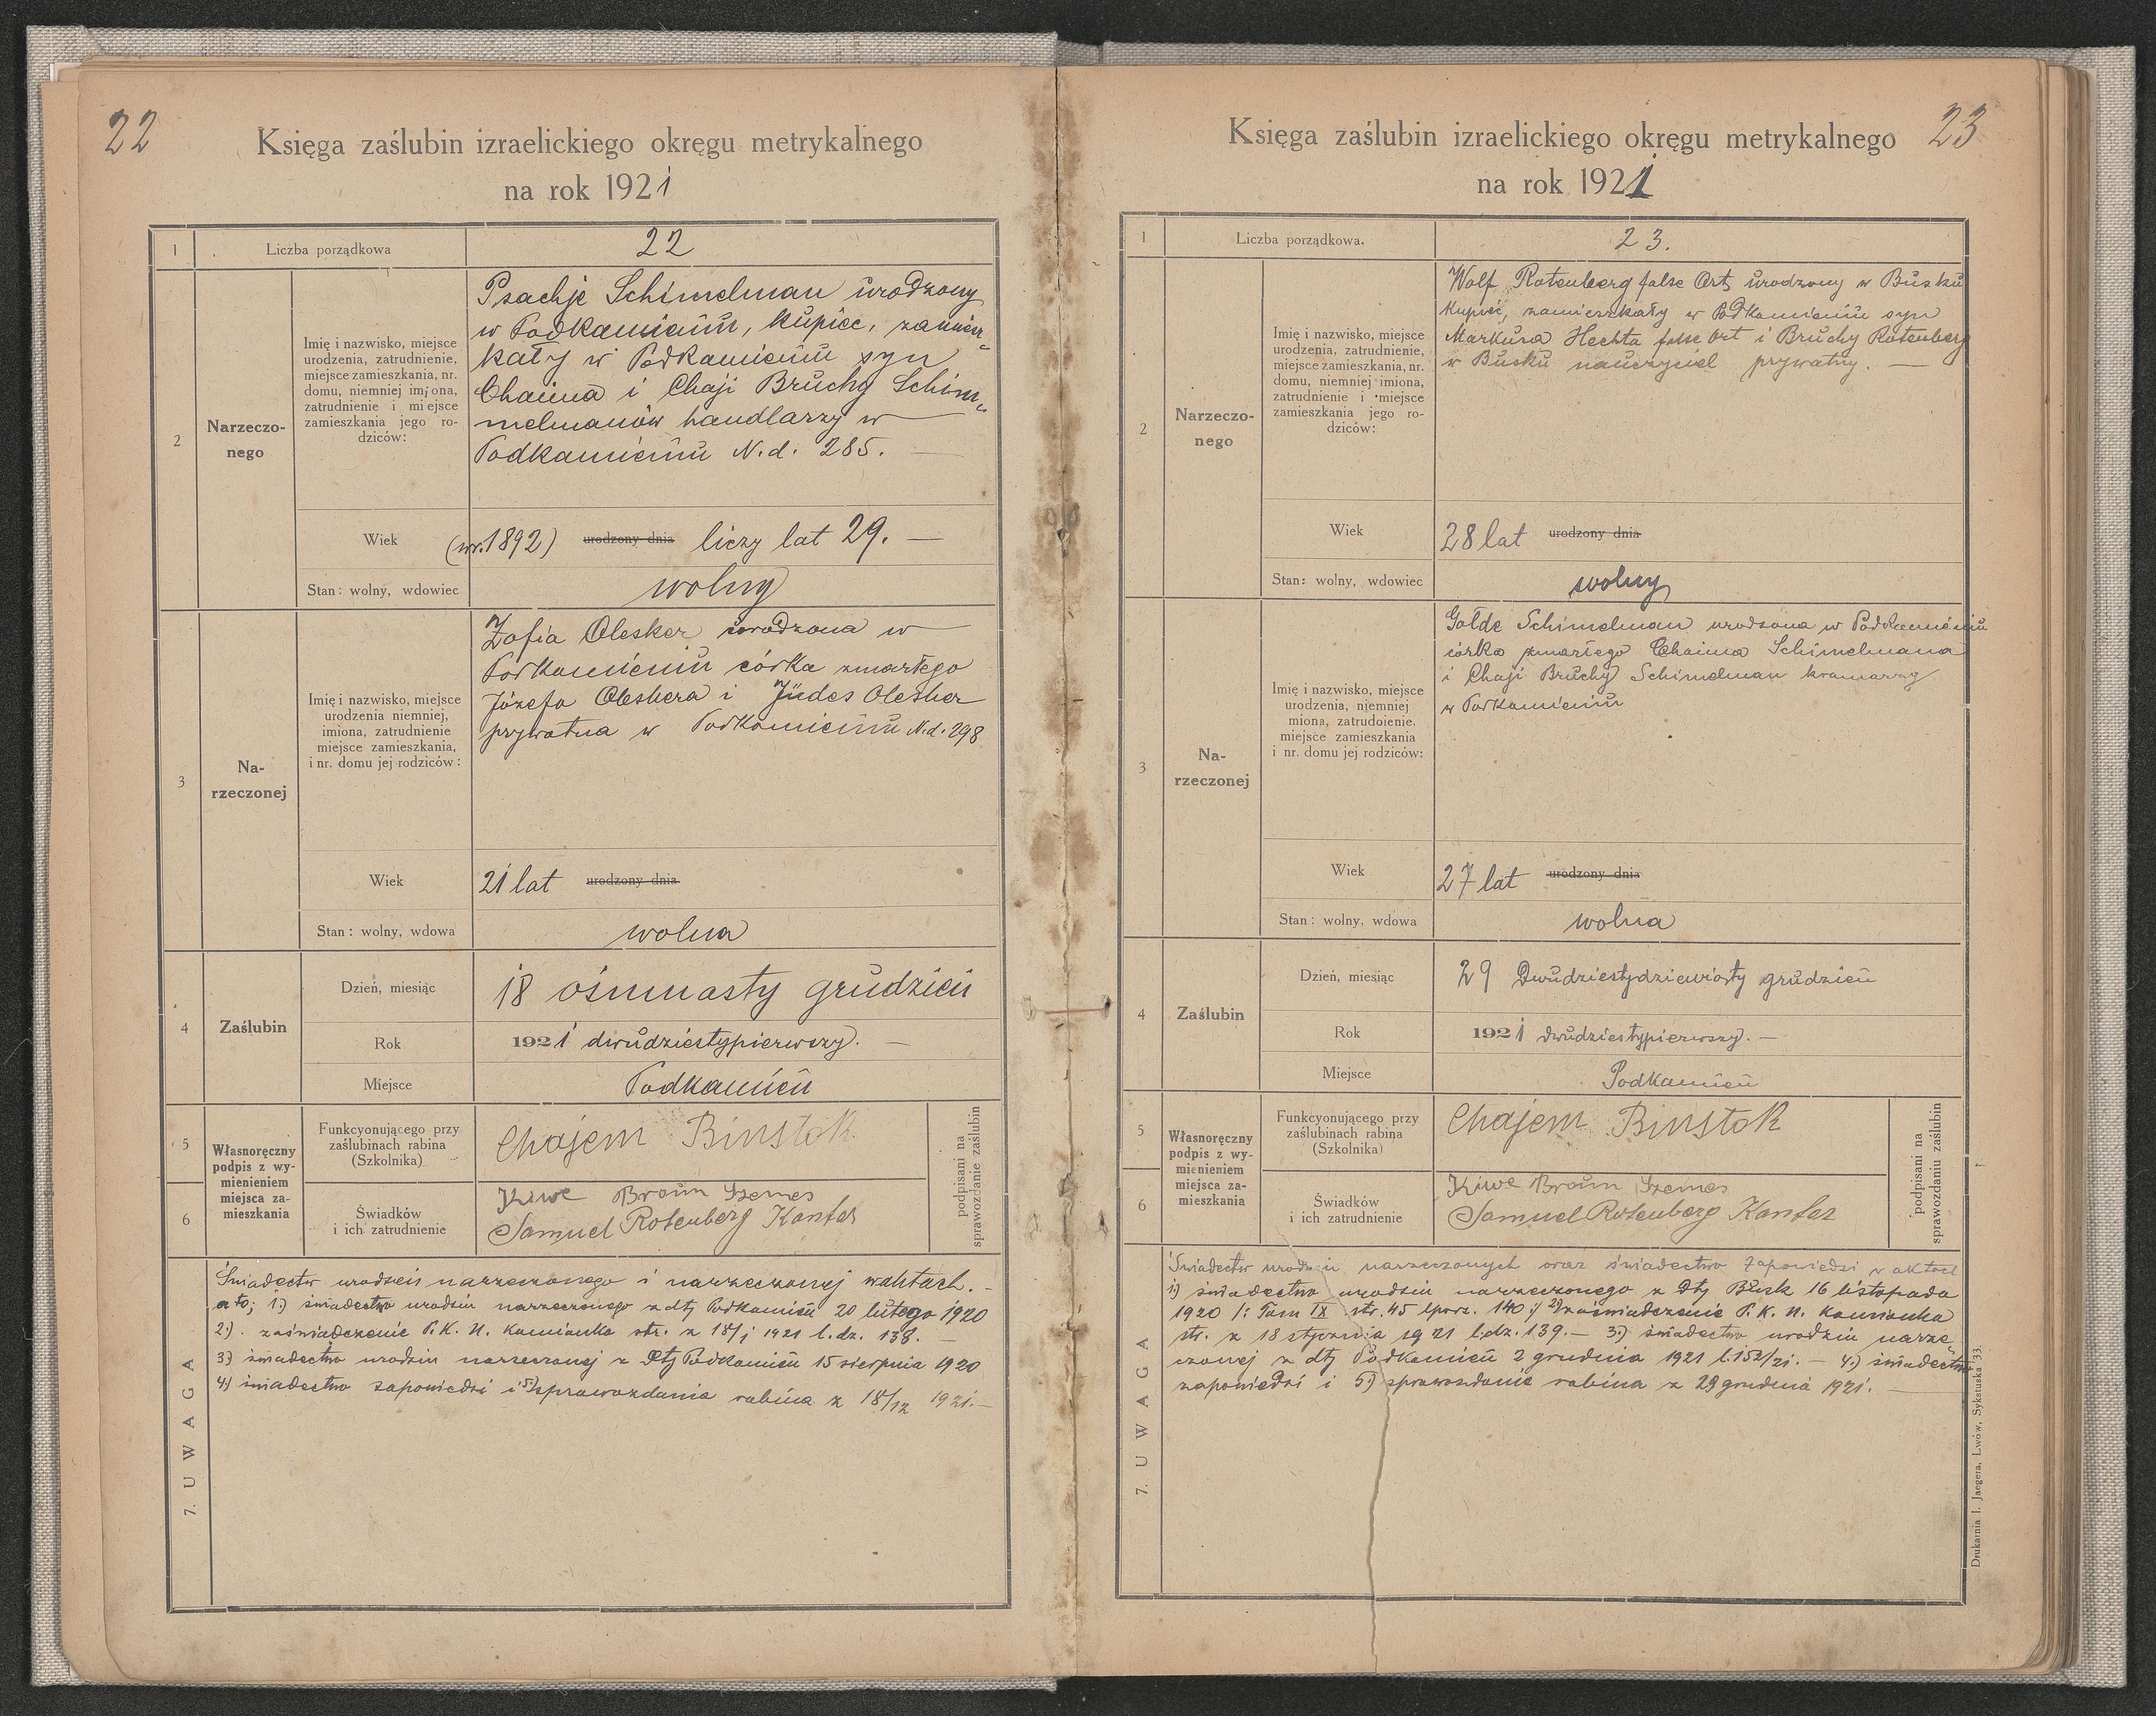 22
Księga zaślubin izraelickiego okręgu metrykalnego
na rok 1921
1
Liczba porządkowa
22
2
Narzeczo-
nego
Imię i nazwisko, miejsce
urodzenia, zatrudnienie,
miejsce zamieszkania, nr.
domu, niemniej imiona,
zatrudnienie i miejsce
zamieszkania jego ro-
dziców:
Psachje Schimelman urodzony
w Podkamieniu, kupiec, zamiesz„
kały w Podkamieniu syn
Chaima i Chaji Bruchy Schim„
melmanów handlarzy w
Podkamieniu N.d. 285. —
Wiek
(ur. 1892) urodzony dnia liczy lat 29. —
Stan: wolny, wdowiec
wolny
3
Na-
rzeczonej
Imię i nazwisko, miejsce
urodzenia niemniej,
imiona, zatrudnienie
miejsce zamieszkania,
i nr. domu jej rodziców:
Zofia Olesker urodzona w
Podkamieniu córka zmarłego
Józefa Oleskera i Jüdes Olesker
prywatna w Podkamieniu N.d. 298
Wiek
21 lat urodzony dnia
Stan: wolny, wdowa
wolna
4
Zaślubin
Dzień, miesiąc
18 ośmnasty grudzień
Rok
1921 dwudziestypierwszy. —
Miejsce
Podkamień
5
6
Własnoręczny
podpis z wy-
mienieniem
miejsca za-
mieszkania
Funkcyonującego przy
zaślubinach rabina
(Szkolnika)
Chajem Binstok
Świadków
i ich zatrudnienie
Kiwe Braun Szemes
Samuel Rotenberg Kanter
podpisani na
sprawozdanie zaślubin
7. UWAGA
Świadectw urodzeń narzeczonego i narzeczonej w aktach. -
a to; 1.) świadectwo urodzin narzeczonego z dty Podkamień 20 lutego 1920
2.). zaświadczenie P. K. U. Kamianka str. z 18/1 1921 l. dz. 138. —
3) świadectwo urodzin narzeczonej z Dty Podkamień 15 sierpnia 1920
4.) świadectwo zapowiedzi i 5) sprawozdania rabina z 18/12 1921. —
23
Księga zaślubin izraelickiego okręgu metrykalnego
na rok 1921
1
Liczba porządkowa.
23.
2
Narzeczo-
nego
Imię i nazwisko, miejsce
urodzenia, zatrudnienie,
miejsce zamieszkania, nr.
domu, niemniej imiona,
zatrudnienie i miejsce
zamieszkania jego ro-
dziców:
Wolf Rotenberg false Ort urodzony w Busku
kupiec, zamieszkały w Podkamieniu syn
Markusa Hechta false Ort i Bruchy Rotenberg
w Busku nauczyciel prywatny. —
Wiek
28 lat urodzony dnia
Stan: wolny, wdowiec
wolny
3
Na-
rzeczonej
Imię i nazwisko, miejsce
urodzenia, niemniej
miona, zatrudoienie.
miejsce zamieszkania
i nr. domu jej rodziców:
Gołde Schimelman urodzona w Podkamieniu
córka zmarłego Chaima Schimelmana
i Chaji Bruchy Schimelman kramarzy
w Podkamieniu
Wiek
27 lat urodzony dnia
Stan: wolny, wdowa
wolna
4
Zaślubin
Dzień, miesiąc
29 Dwudziestydziewiąty grudzień
Rok
1921 dwudziestypierwszy. —
Miejsce
Podkamień
5
6
Własnoręczny
podpis z wy-
mienieniem
miejsca za-
mieszkania
Funkcyonującego przy
zaślubinach rabina
(Szkolnika)
Chajem Binstok
Świadków
i ich zatrudnienie
Kiwe Braun Szemes
Samuel Rotenberg Kanter
podpisani na
sprawozdaniu zaślubin
7. UWAGA
Świadectw urodzin narzeczonych oraz świadectwo zapowiedzi w aktach
1) świadectwo urodzin narzeczonego z Dty Busk 16 listopada
1920 /: Tom IX str. 45 lporz. 140 :/ 2) zaświadczenie P. K. U. Kamianka
str. z 18 stycznia 1921 l. dz. 139. — 3.) świadectwo urodzin narze
czonej z dty Podkamień 2 grudnia 1921 l. 152/21. — 4.) świadectwo
zapowiedzi i 5.) sprawozdanie rabina z 29 grudnia 1921. —
Drukarnia I. Jaegera, Lwów, Sykstuska 33.